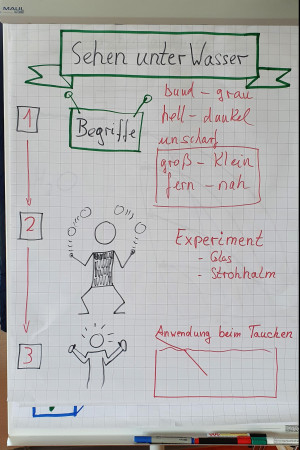 MAUL
Sehen unter Wasser
1
Begriffe
bund - grau
hell - dunkel
unscharf
groß - klein
fern - nah
2
Experiment
- Glas
- Strohhalm
3
Anwendung beim Tauchen